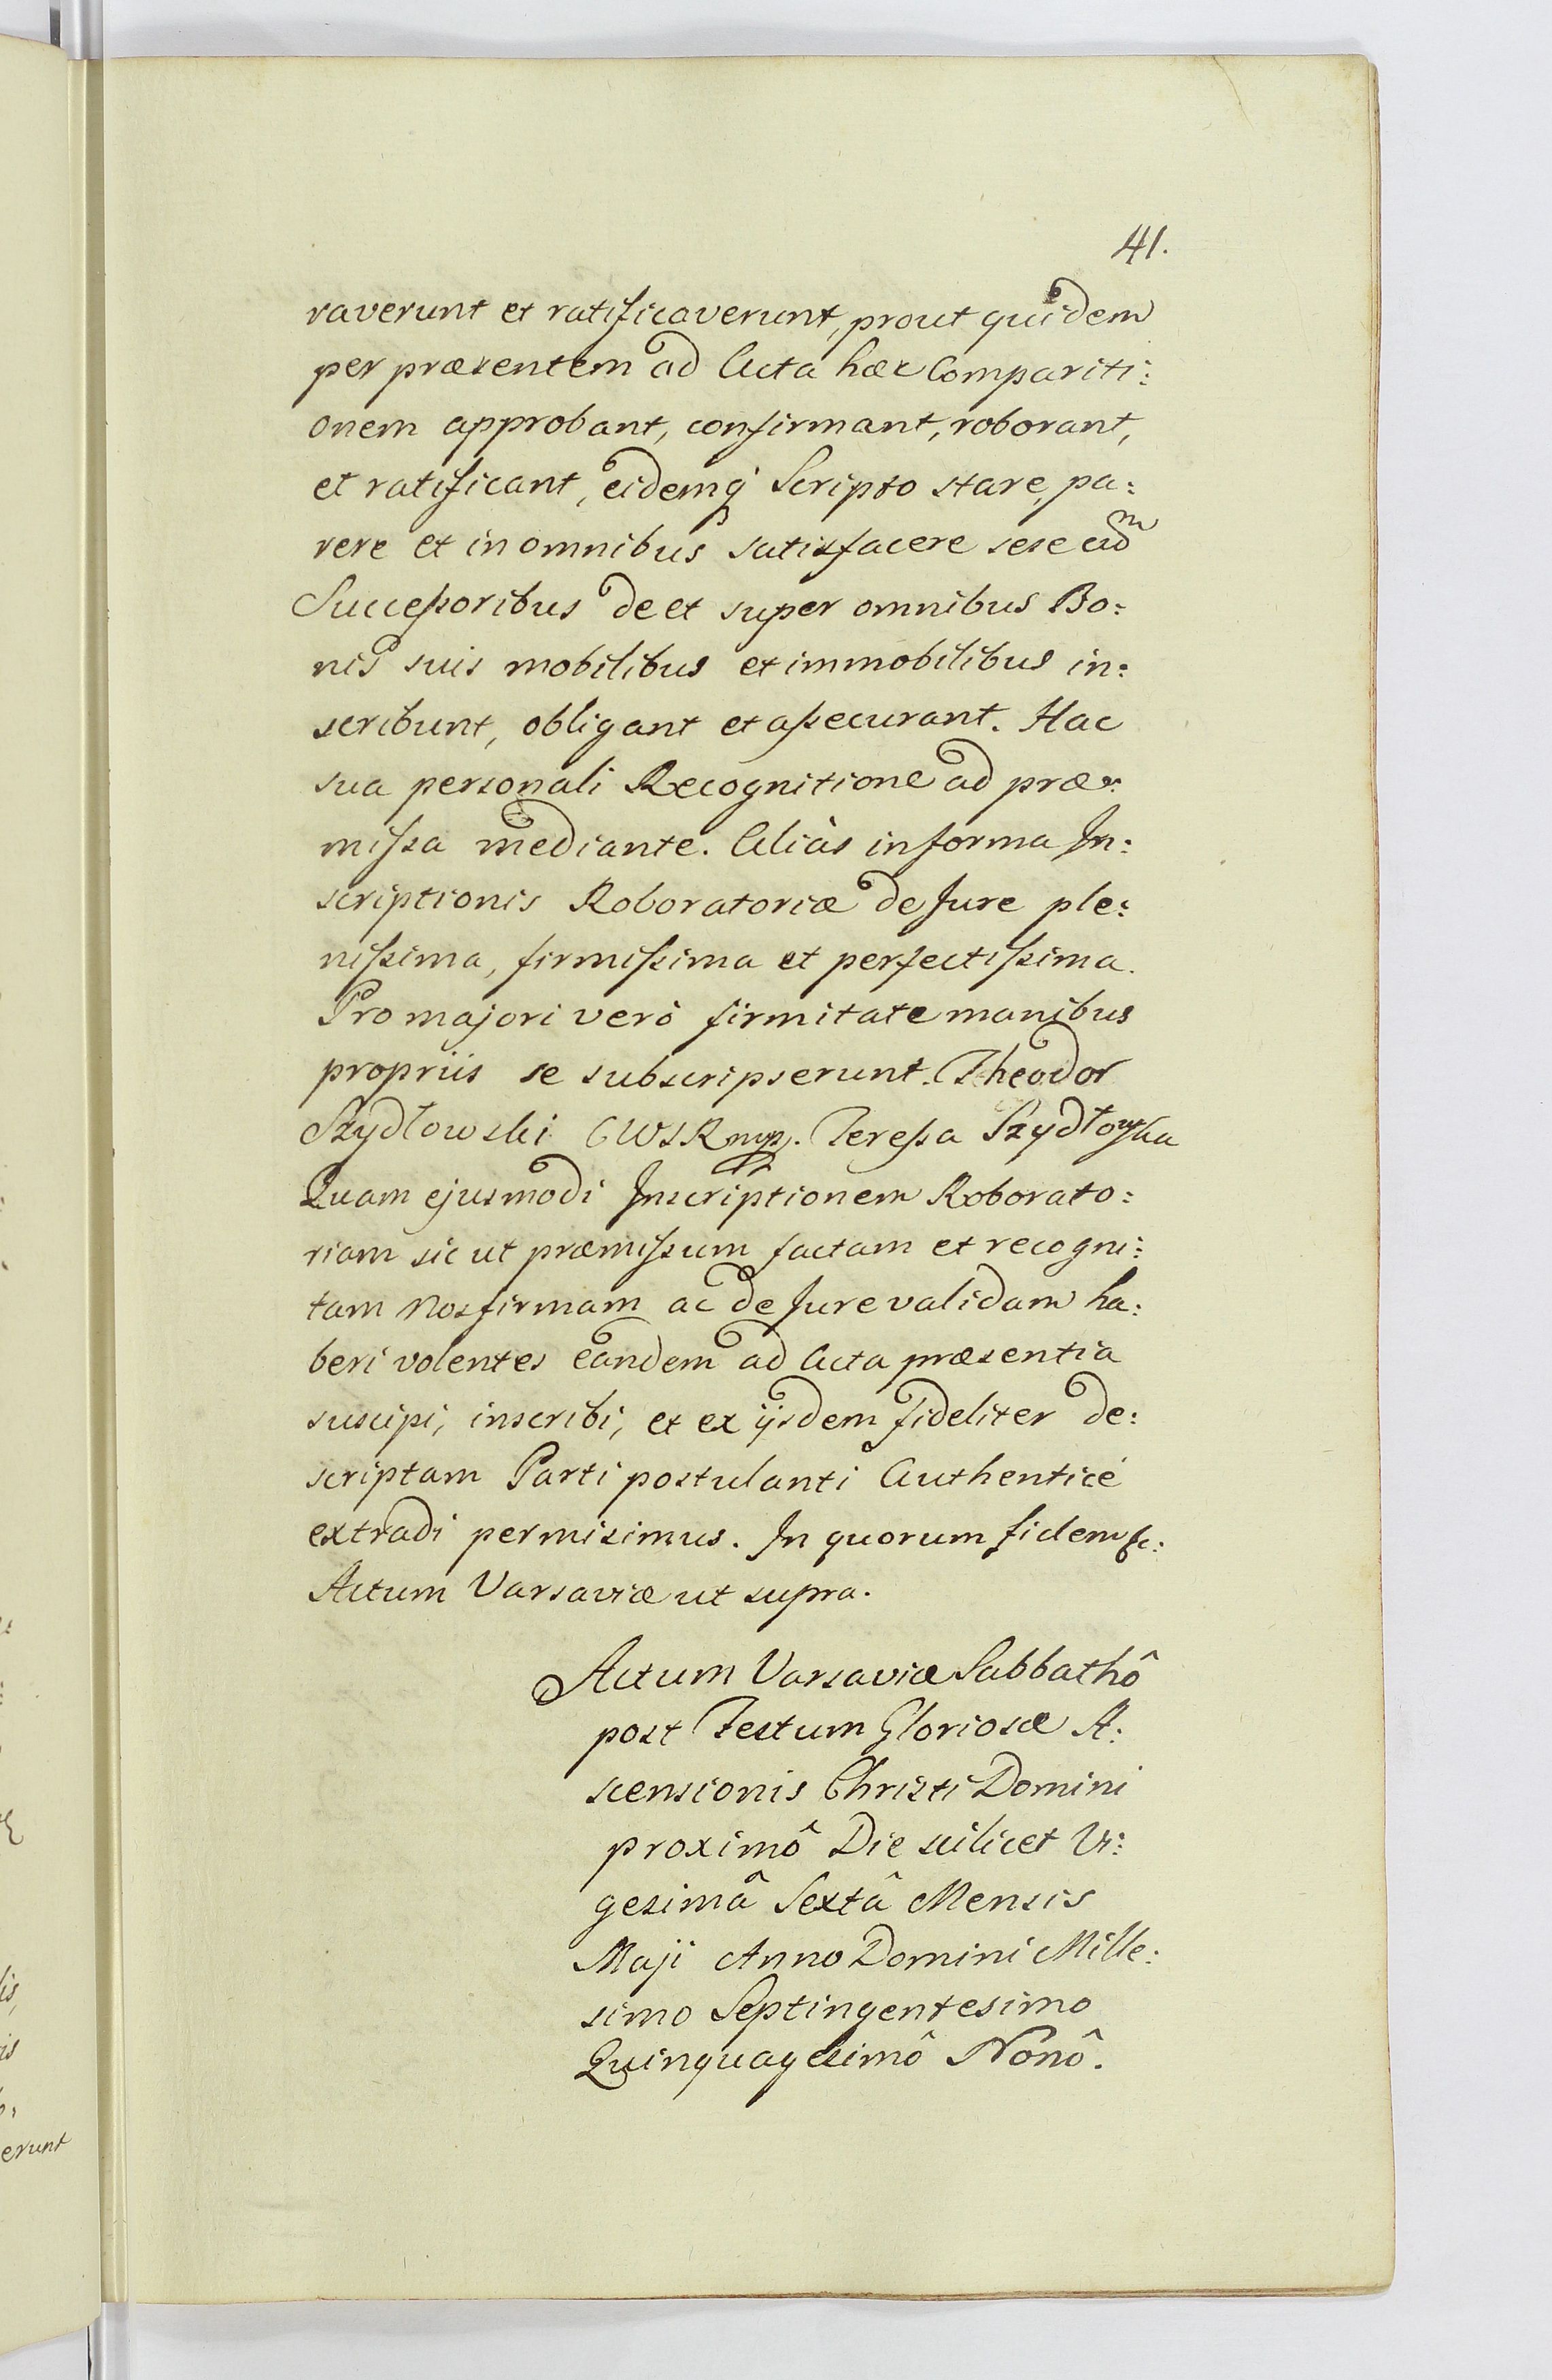 41.
raverunt et ratificaverunt, prout quidem
per præsentem ad Acta hæc Compariti:
onem approbant, confirmant, roborant,
et ratificant, eidemq́ Scripto stare, pa:
rere et in omnibus satisfacere sese eidm
Successoribus de et super omnibus Bo:
nis suis mobilibus et immobilibus in:
scribunt, obligant et assecurant. Hac
sua personali Recognitione ad præ:
missa mediante. Aliàs in forma In:
scriptionis Roboratoriæ de Jure ple:
nissima, firmissima et perfectissima.
Pro majori verò firmitate manibus
propriis se subscripserunt. Theodor
Szydłowski CWSR mp. Teressa Szydłowska
Quam ejusmodi Inscriptionem Roborato:
riam sic ut præmissum factam et recogni:
tam nos firmam ac de Jure validam ha:
beri volentes eandem ad Acta præsentia
suscipi, inscribi, et ex ijsdem fideliter de:
scriptam Parti postulanti Authenticé
extradi permisimus. In quorum fidem &c:
Actum Varsaviæ ut supra.
Actum Varsaviæ Sabbathô
post Festum Gloriosæ A:
scensionis Christi Domini
proximô Die scilicet Vi:
gesimâ Sextâ Mensis
Maji Anno Domini Mille:
simo Septingentesimo
Quinquagesimô Nonô.
erunt